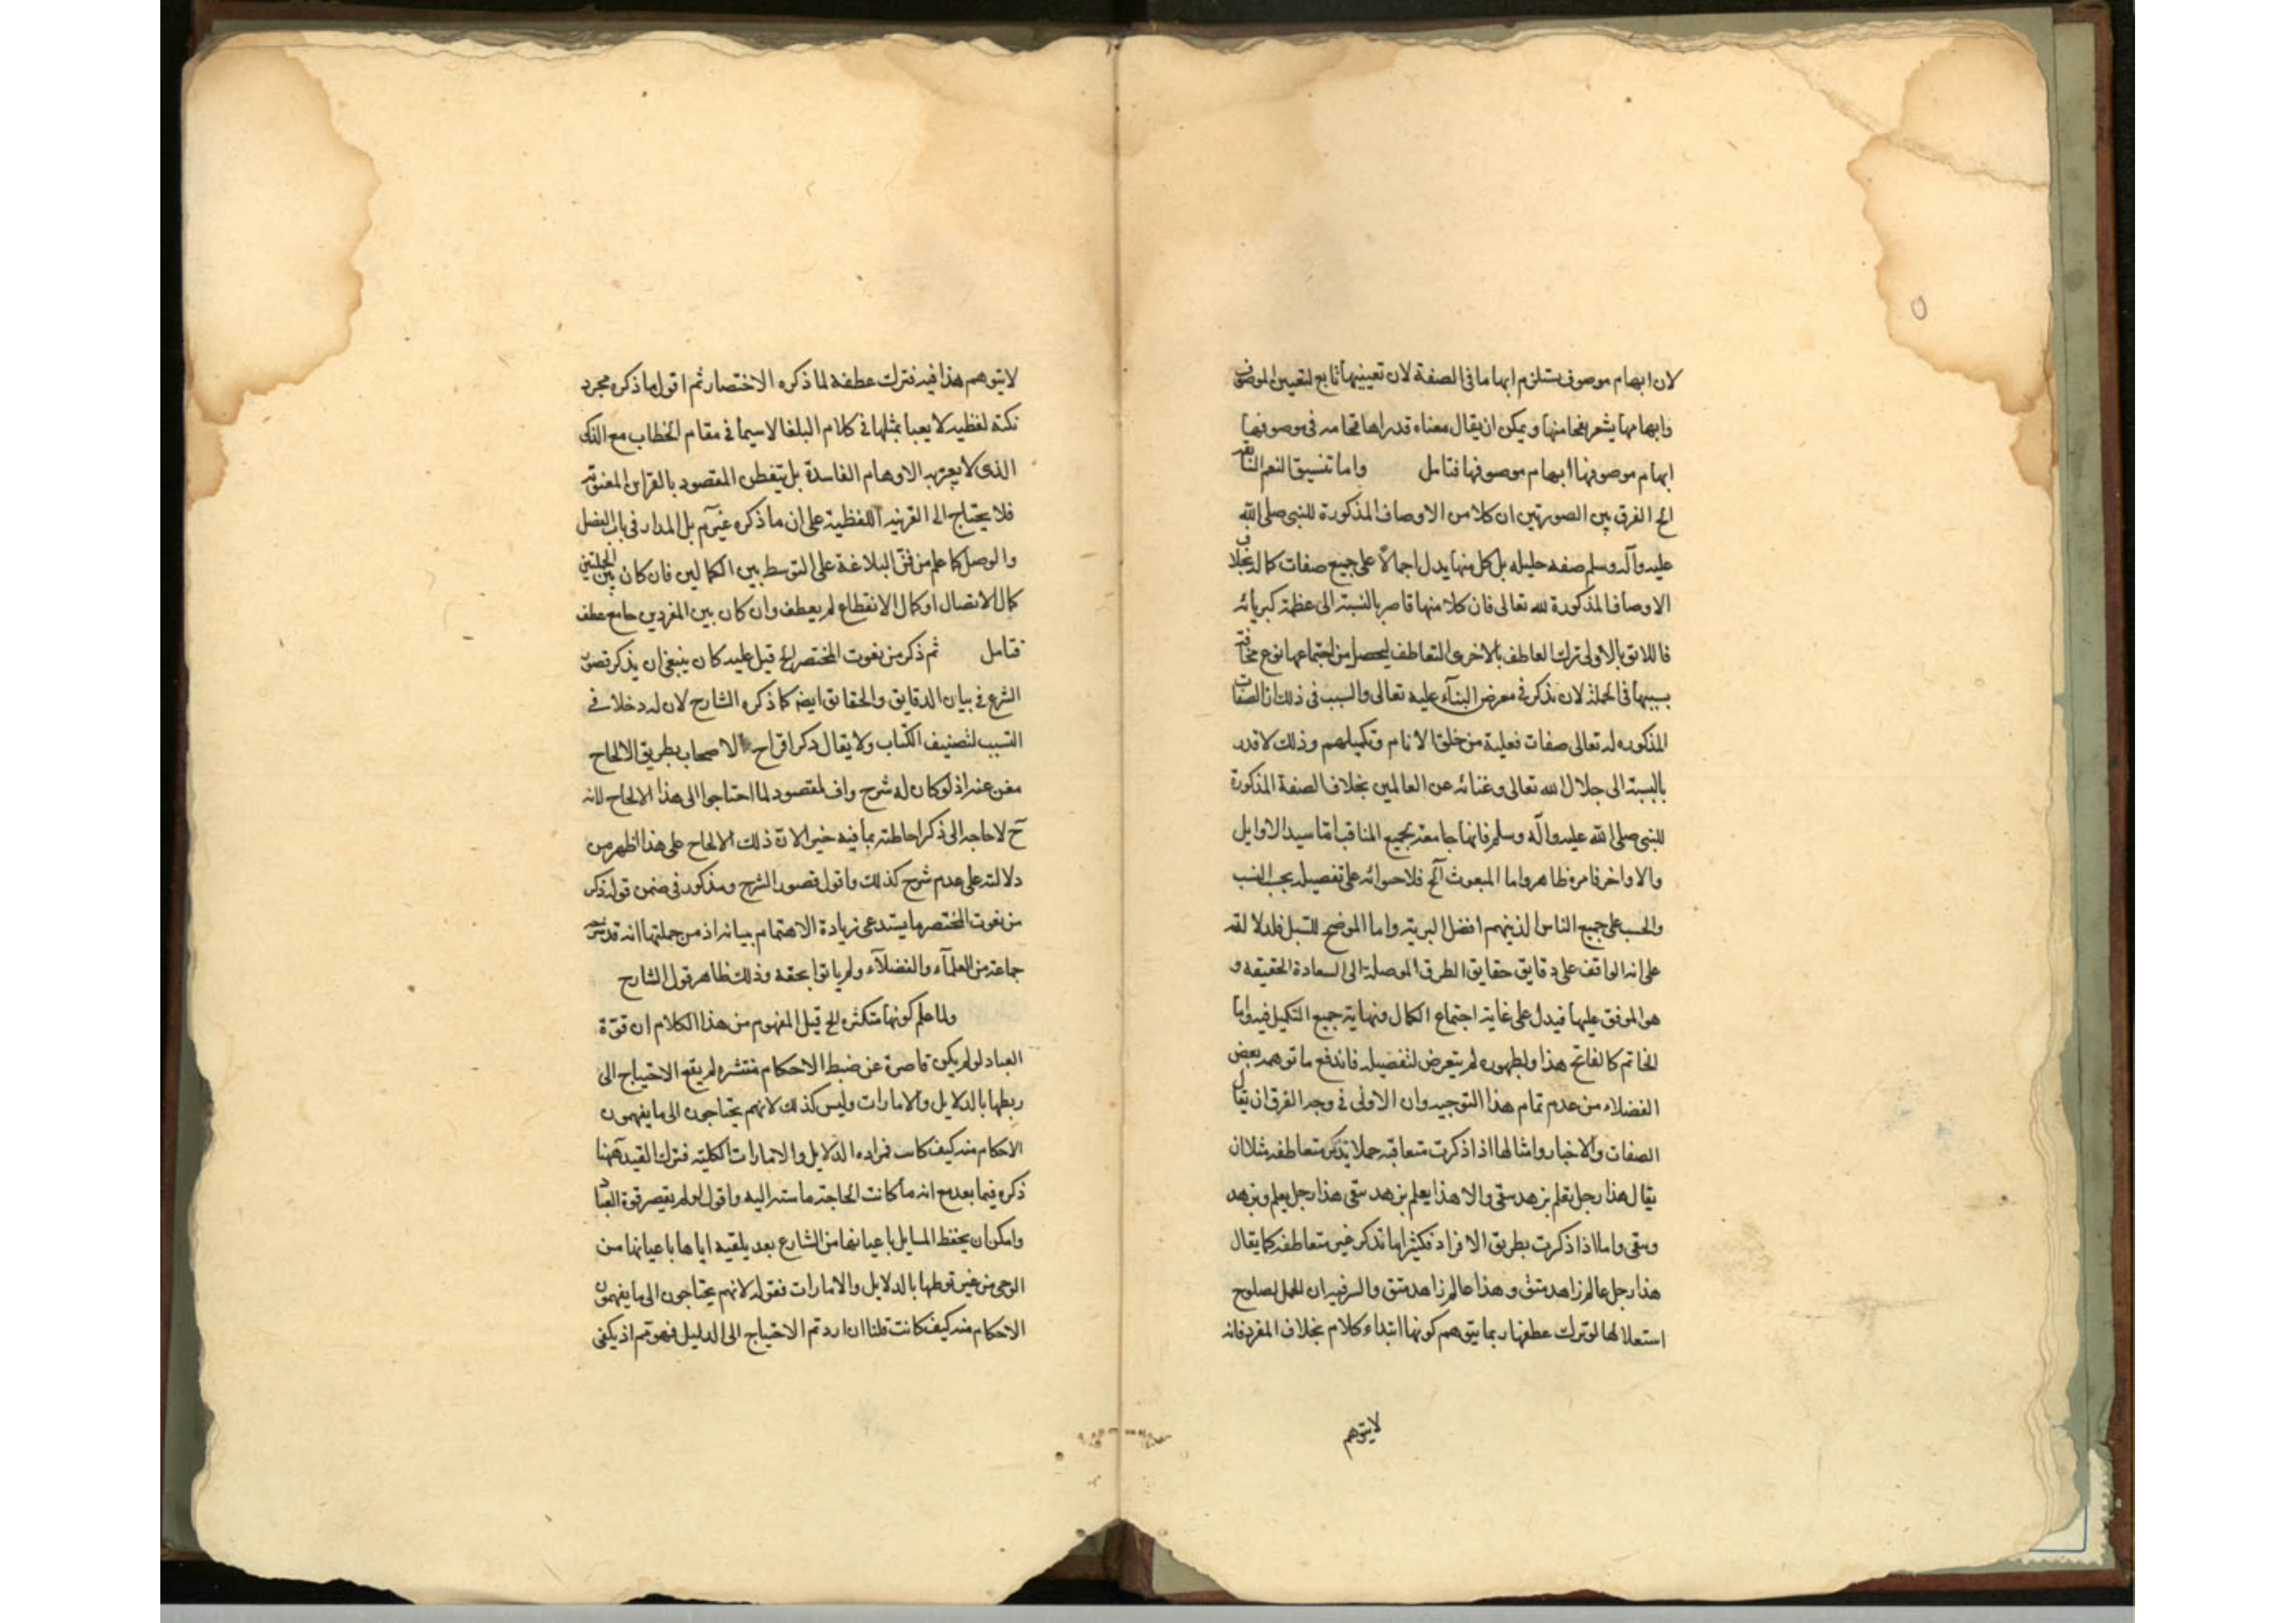 لان ابهام موصوف يستلزم ابهاما فى الصفة لان تعيينها تابع لتعيين الموصوف
وابهامها يشعر بفخامتها ويمكن ان يقال معناه قدرا هنا فخامه فى موصوفها
ابهام موصوفها ابهام موصوفها فتامل واما تنسيق النعم
الخ الفرق بين الصورتين ان كلا من الاوصاف المذكورة للنبى صلى الله
عليه وآله وسلم صفه جليله بل كل منها يدل اجمالا على جميع صفات كماله بخلاف
الاوصاف المذكورة لله تعالى فان كلا منها قاصر بالنسبة الى عظمة كبريائه
فاللائق بالاولى ترك العاطف بالاخرى التعاطف ليحصل من اجتماعها نوع فخامة
بسببها فى الجملة لان يذكر فى معرض الثنآء عليه تعالى والسبب فى ذلك ان الصفات
المذكوره له تعالى صفات فعلية من خلق الانام وتكميلهم وذلك لا قدر
بالنسبة الى جلال الله تعالى وغنائه عن العالمين بخلاف الصفة المذكورة
للنبى صلى الله عليه وآله وسلم فانها جامعة بجميع المناقب اما سيد الاوايل
والاواخر فامره ظاهر واما المبعوث الخ فلاحتوائه على تفصيله بحب النسب
والحسب على جميع الناس الذينهم افضل البريه واما الموضح للسبل فلدلالته
على انه الواقف على دقايق حقايق الطرق الموصلة الى السعادة الحقيقه و
هو الموفق عليها فيدل على غاية اجتماع الكمال ونهاية جميع التكميل فيه واما
الخاتم كالفاتح هذا ولظهوره لم يتعرض لتفصيله فاندفع ما توهمه بعض
الفضلاء من عدم تمام هذا التوجيه وان الاولى فى وجه الفرق ان يقال
الصفات والاخبار وامثالها اذا ذكرت متعاقبه جملا يذكر متعاطفه مثلا ان
يقال هذا رجل يعلم يزهد يتقى والا هذا يعلم يزهد يتقى هذا رجل يعلم ويزهد
ويتقى واما اذا ذكرت بطريق الافراد فكثيرا ما تذكر غير متعاطفه كما يقال
هذا رجل عالم زاهد متق وهذا عالم زاهد متق والسر فيه ان الجمل لصلوح
استعلالها لو ترك عطفها ربما يتوهم كونها ابتداء كلام بخلاف المفرد فانه
لا يتوهم
لا يتوهم هذا فيه فترك عطفه لما ذكره الاختصار ثم اقول ما ذكره مجرد
نكتة لفظيه لا يعبا بمثلها فى كلام البلغا لا سيما فى مقام الخطاب مع الذكى
الذى لا يعتريه الاوهام الفاسدة بل يتفطن المقصود بالقراين المعنويه
فلا يحتاج الى القرينه اللفظية على ان ما ذكره غير تم بل المدار فى باب الفصل
والوصل كما علم من فن البلاغة على التوسط بين الكمالين فان كان بين الجملتين
كمال الاتصال او كمال الانقطاع لم يعطف وان كان بين المفردين جامع عطف
فتامل ثم ذكر من نعوت المختصر الخ قيل عليه كان ينبغى ان يذكر قصور
الشرع فى بيان الدقايق والحقائق ايضه كما ذكره الشارح لان له دخلا فى
التسبب لتصنيف الكتاب ولا يقال ذكر اقراح الاصحاب بطريق الالحاح
مغن عنه اذ لو كان له شرح واف لمقصود لما احتاجوا الى هذا الالحاح لانه
ح لا حاجه الى ذكر احاطته بما فيه خير الا ان ذلك الالحاح على هذا اظهر من
دلالته على عدم شرح كذلك واقول قصور الشرح ومذكور فى ضمن قوله ذكر
من نعوت المختصر ما يستدعى زيادة الاهتمام ببيانه اذ من جملتها انه قد شرحه
جماعة من العلمآء والفضلآء ولم ياتوا بحقه وذلك ظاهر قول الشارح
ولما علم كونها متكثره الخ قيل المفهوم من هذا الكلام ان قوة
العباد لو لم يكن قاصرة عن ضبط الاحكام منتشره لم يقع الاحتياج الى
ربطها بالدلايل والامارات وليس كذلك لانهم يحتاجون الى ما يفهمون
الاحكام منه كيف كانت فمراده الدلايل والامارات الكليه فترك القيد ههنا
ذكره فيما بعد مع انه ما كانت الحاجة ماسته اليه واقول لو لم يقصر قوة العباد
وامكن ان يحفظ المسايل باعيانها من الشارع بعد يلقيه اياها باعيانها من
الوحى من غير توطها بالدلايل والامارات فقوله لانهم يحتاجون الى ما يفهمون
الاحكام منه كيف كانت قلنا ان اردتم الاحتياج الى الدليل فهو تم اذ يكفى